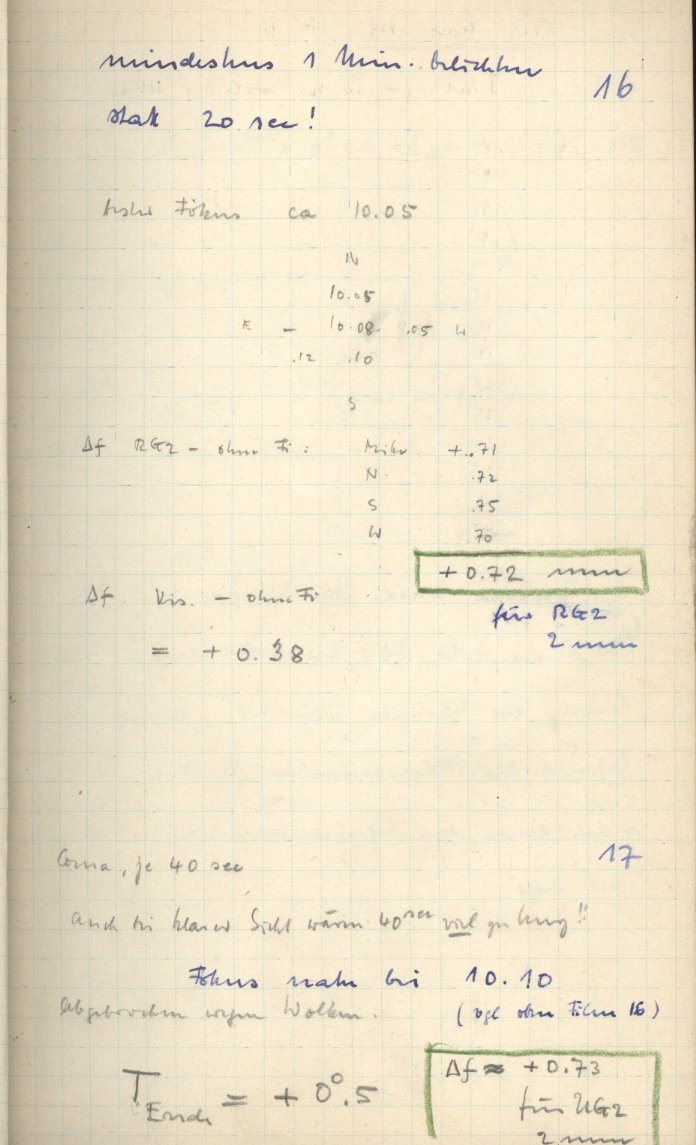 mindestens 1 Min. belichten
16
statt 20 sec!
bester Fokus ca 10.05
N
10.05
E – 10.08 .05 W
.12 .10
S
Δf RG2 – ohne Fi: Mitte +.71
N .72
S .75
W .70
+0.72 mm
Δf Vis. – ohne Fi
für RG2
2 mm
= + 0.38
17
Coma, je 40 sec
Auch bei klarer Sicht wären 40 sec viel zu kurz!!
Fokus nahe bei 10.10
Abgebrochen wegen Wolken. (vgl oben Film 16)
T Ende = + 0°.5
Δf ≈ +0.73
für UG2
2 mm